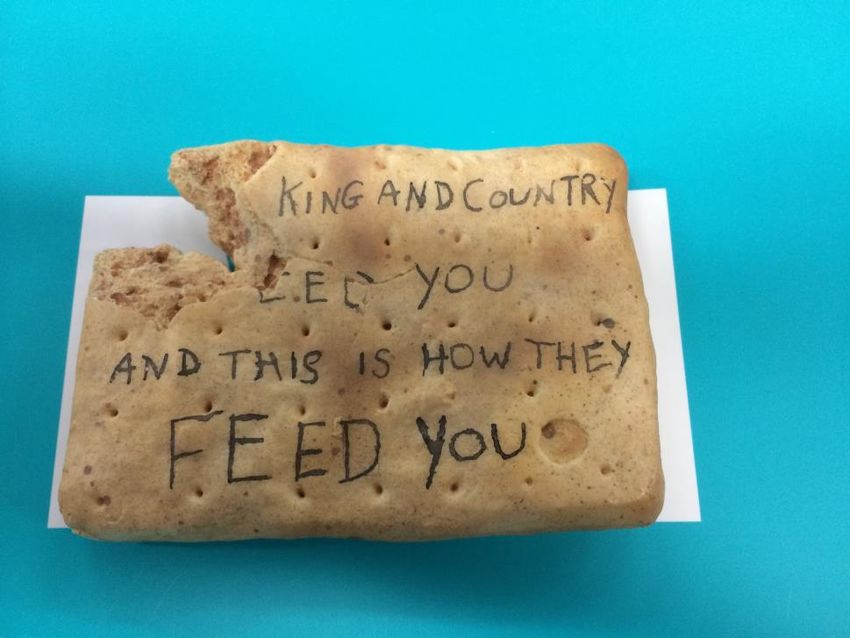 KING AND COUNTRY
YOU
AND THIS IS HOW THEY
FEED YOU